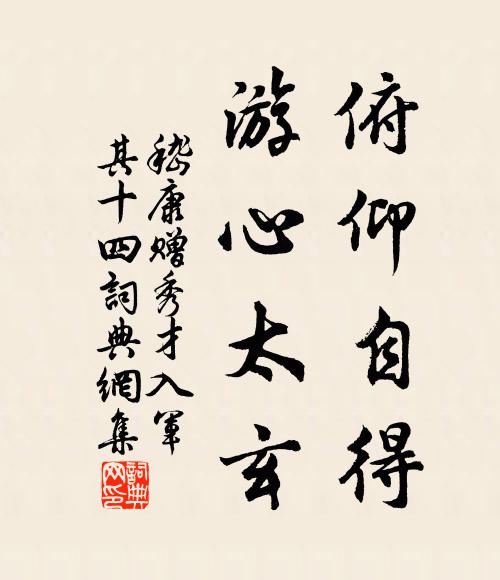 俯仰自得
游心太玄
嵇康赠秀才入军
其十四詞典網集
詞典网印